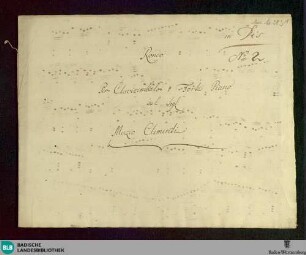 in Dis
No 2
Rondo
Per Clavicembalo o Forte Piano
del Sigr
Muzio Clementi
BLB BADISCHE
LANDESBIBLIOTHEK
Baden-Württemberg